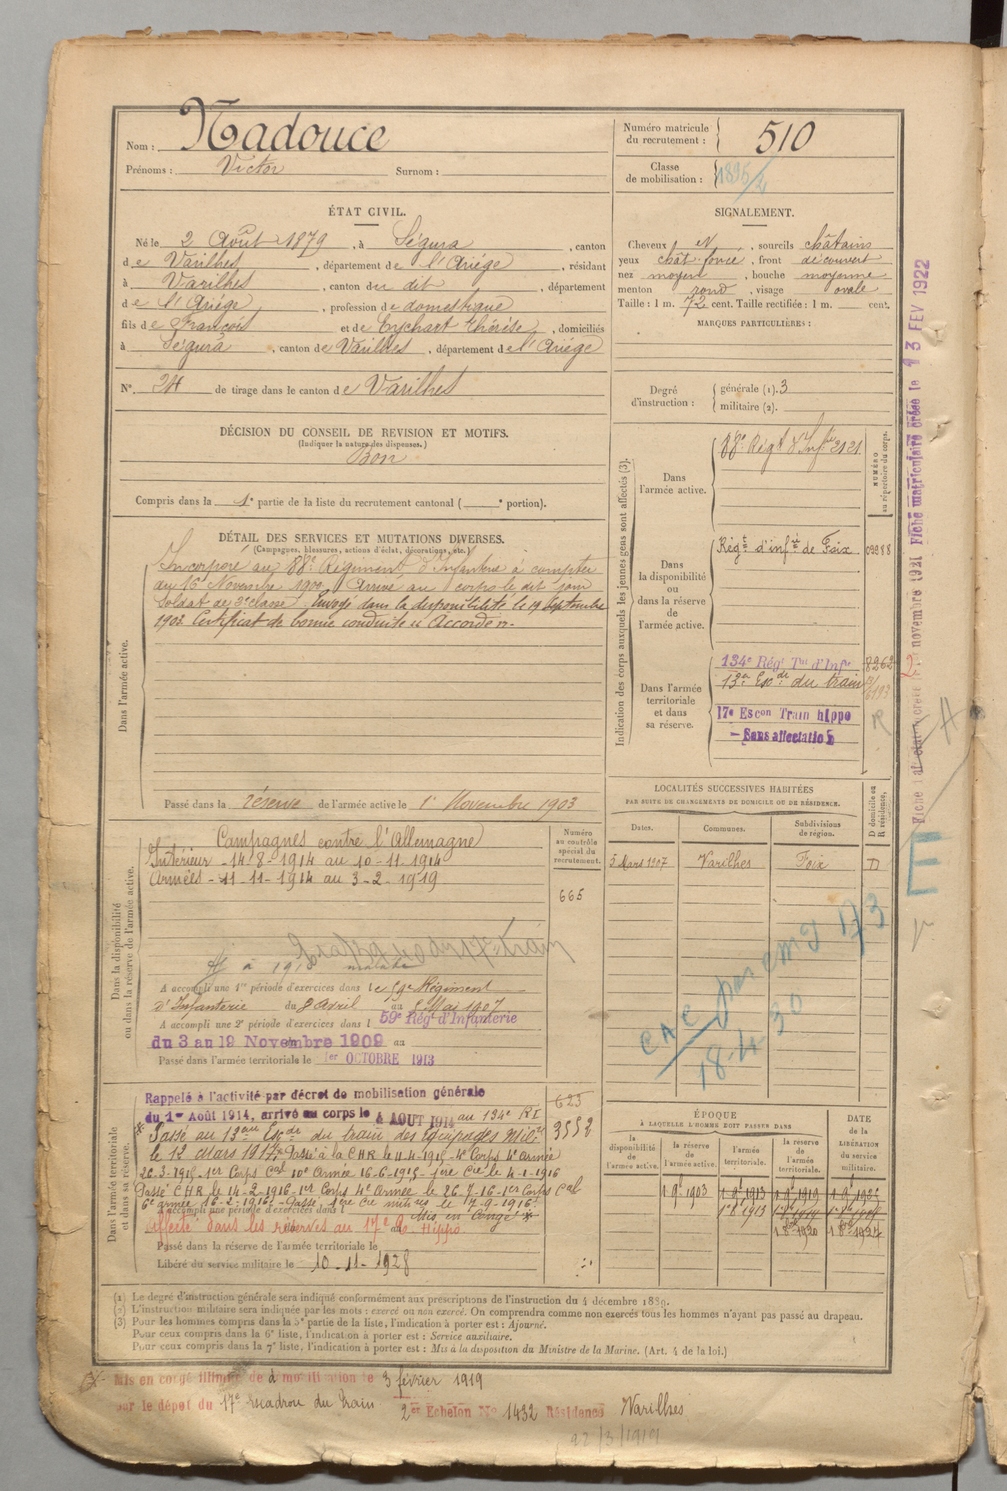 Nom : Nadouce
Prénoms : Victor Surnom :
Numéro matricule du recrutement : 510
Classe de mobilisation : 1895/2
ÉTAT CIVIL.
Né le 2 Août 1879, à Ségura, canton
de Varilhes, département de l'Ariége, résidant
à Varilhes, canton du dit, département
de l'Ariége, profession de domestique
fils de François et de Eychart Thérèse, domiciliés
à Ségura, canton de Varilhes, département de l'Ariége
N° 24 de tirage dans le canton de Varilhes
SIGNALEMENT.
Cheveux et, sourcils châtains
yeux chât. foncé, front découvert
nez moyen, bouche moyenne
menton rond, visage ovale
Taille : 1 m. 72 cent. Taille rectifiée : 1 m. cent.
MARQUES PARTICULIÈRES :
Degré d'instruction : générale (1). 3
militaire (2).
DÉCISION DU CONSEIL DE REVISION ET MOTIFS.
(Indiquer la nature des dispenses.)
Bon
Compris dans la 1e partie de la liste du recrutement cantonal ( e portion).
DÉTAIL DES SERVICES ET MUTATIONS DIVERSES.
(Campagnes, blessures, actions d'éclat, décorations, etc.)
Dans l'armée active.
Incorporé au 88e Régiment d'Infanterie à compter
du 16 Novembre 1900. Arrivé au corps le dit jour
soldat de 2e classe. Envoyé dans la disponibilité le 19 Septembre
1903. Certificat de bonne conduite "Accordé".
Passé dans la réserve de l'armée active le 1er Novembre 1903
Indication des corps auxquels les jeunes gens sont affectés (3).
NUMÉRO au répertoire du corps.
Dans l'armée active.
88e Régt d'Infie 2121
Dans la disponibilité ou dans la réserve de l'armée active.
Régt d'infie de Foix 09288
Dans l'armée territoriale et dans sa réserve.
134e Régt Tal d'Infie 8262
13e Escon du train
17e Escon Train hippo R
- Sans affectation
LOCALITÉS SUCCESSIVES HABITÉES
PAR SUITE DE CHANGEMENTS DE DOMICILE OU DE RÉSIDENCE.
Dates. Communes. Subdivisions de région. D domicile ou R résidence.
5 Mars 1907 Varilhes Foix D
Dans la disponibilité ou dans la réserve de l'armée active.
Numéro au contrôle spécial du recrutement.
Campagnes contre l'Allemagne
Intérieur - 14-8-1914 au 10-11-1914
Armées - 11-11-1914 au 3-2-1919
665
A accompli une 1re période d'exercices dans le 59e Régiment
d'Infanterie du 8 Avril au 5 Mai 1907
A accompli une 2e période d'exercices dans l 59e Régt d'Infanterie
du 3 au 19 Novembre 1909 au
Passé dans l'armée territoriale le 1er OCTOBRE 1913
Dans l'armée territoriale et dans sa réserve.
Rappelé à l'activité par décret de mobilisation générale
du 1er Août 1914, arrivé au corps le 4 AOUT 1914 au 134e RI
Passé au 13eme Escon du train des équipages milres
le 12 mars 1917. Passé à la CHR le 11-4-1915 - 4e Corps 4e armée
26-3-1915 - 1er Corps Cal 10e Armée 16-6-1915 - 1ère Cie le 4-1-1916
Passé CHR le 14-2-1916 - 1er Corps 4e Armée le 26-7-16 - 1er Corps Cal
6e armée 16-2-1916 - Passé 1ère Cie mitses le 17-9-1916.
A accompli une période d'exercices dans l Mis en congé
affecté dans les réserves au 17e Hippo
Passé dans la réserve de l'armée territoriale le
Libéré du service militaire le 10-11-1928
623
3552
ÉPOQUE
À LAQUELLE L'HOMME DOIT PASSER DANS
la disponibilité de l'armée active. la réserve de l'armée active. l'armée territoriale. la réserve de l'armée territoriale. DATE de la LIBÉRATION du service militaire.
1 9e 1903 1 9e 1913 1 9e 1919 1 9e 1925
CAC par emd 173
18-4-30
E
Fiche matriculaire créée le 13 FEV 1922
(1) Le degré d'instruction générale sera indiqué conformément aux prescriptions de l'instruction du 4 décembre 1889.
(2) L'instruction militaire sera indiquée par les mots : exercé ou non exercé. On comprendra comme non exercés tous les hommes n'ayant pas passé au drapeau.
(3) Pour les hommes compris à la 5e partie de la liste, l'indication à porter est : Ajourné.
Pour ceux compris dans la 6e liste, l'indication à porter est : Service auxiliaire.
Pour ceux compris dans la 7e liste, l'indication à porter est : Mis à la disposition du Ministre de la Marine. (Art. 4 de la loi.)
Mis en congé illimité de démobilisation le 3 février 1919
par le dépôt du 17e escadron du train 2e Echelon No 1432 Résidence Varilhes
22/3/1919